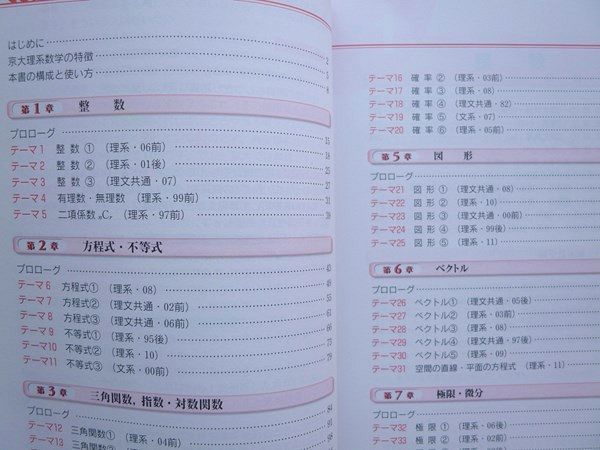 はじめに 2
京大理系数学の特徴 5
本書の構成と使い方 8
第1章 整 数
プロローグ 15
テーマ1 整 数 ① （理系・06前） 18
テーマ2 整 数 ② （理系・01後） 25
テーマ3 整 数 ③ （理文共通・07） 27
テーマ4 有理数・無理数 （理系・99前） 31
テーマ5 二項係数 nCr （理系・97前） 39
第2章 方程式・不等式
プロローグ 43
テーマ6 方程式① （理系・08） 49
テーマ7 方程式② （理文共通・02前） 55
テーマ8 方程式③ （理文共通・06前） 61
テーマ9 不等式① （理系・95後） 66
テーマ10 不等式② （理系・10） 73
テーマ11 不等式③ （文系・00前） 79
第3章 三角関数, 指数・対数関数
プロローグ 84
テーマ12 三角関数① （理系・04前） 91
テーマ13 98
テーマ16 確 率 ② （理系・03前）
テーマ17 確 率 ③ （理系・08）
テーマ18 確 率 ④ （理文共通・82）
テーマ19 確 率 ⑤ （文系・07）
テーマ20 確 率 ⑥ （理系・05前）
第5章 図 形
プロローグ
テーマ21 図 形 ① （理文共通・08）
テーマ22 図 形 ② （理系・10）
テーマ23 図 形 ③ （理文共通・00前）
テーマ24 図 形 ④ （理系・99後）
テーマ25 図 形 ⑤ （理系・11）
第6章 ベクトル
プロローグ
テーマ26 ベクトル① （理文共通・05後）
テーマ27 ベクトル② （理系・03前）
テーマ28 ベクトル③ （理系・08）
テーマ29 ベクトル④ （理文共通・97後）
テーマ30 ベクトル⑤ （理系・09）
テーマ31 空間の直線・平面の方程式 （理系・11）
第7章 極限・微分
プロローグ
テーマ32 極 限 ① （理系・06後）
テーマ33 極 限 ② （理系・02前）